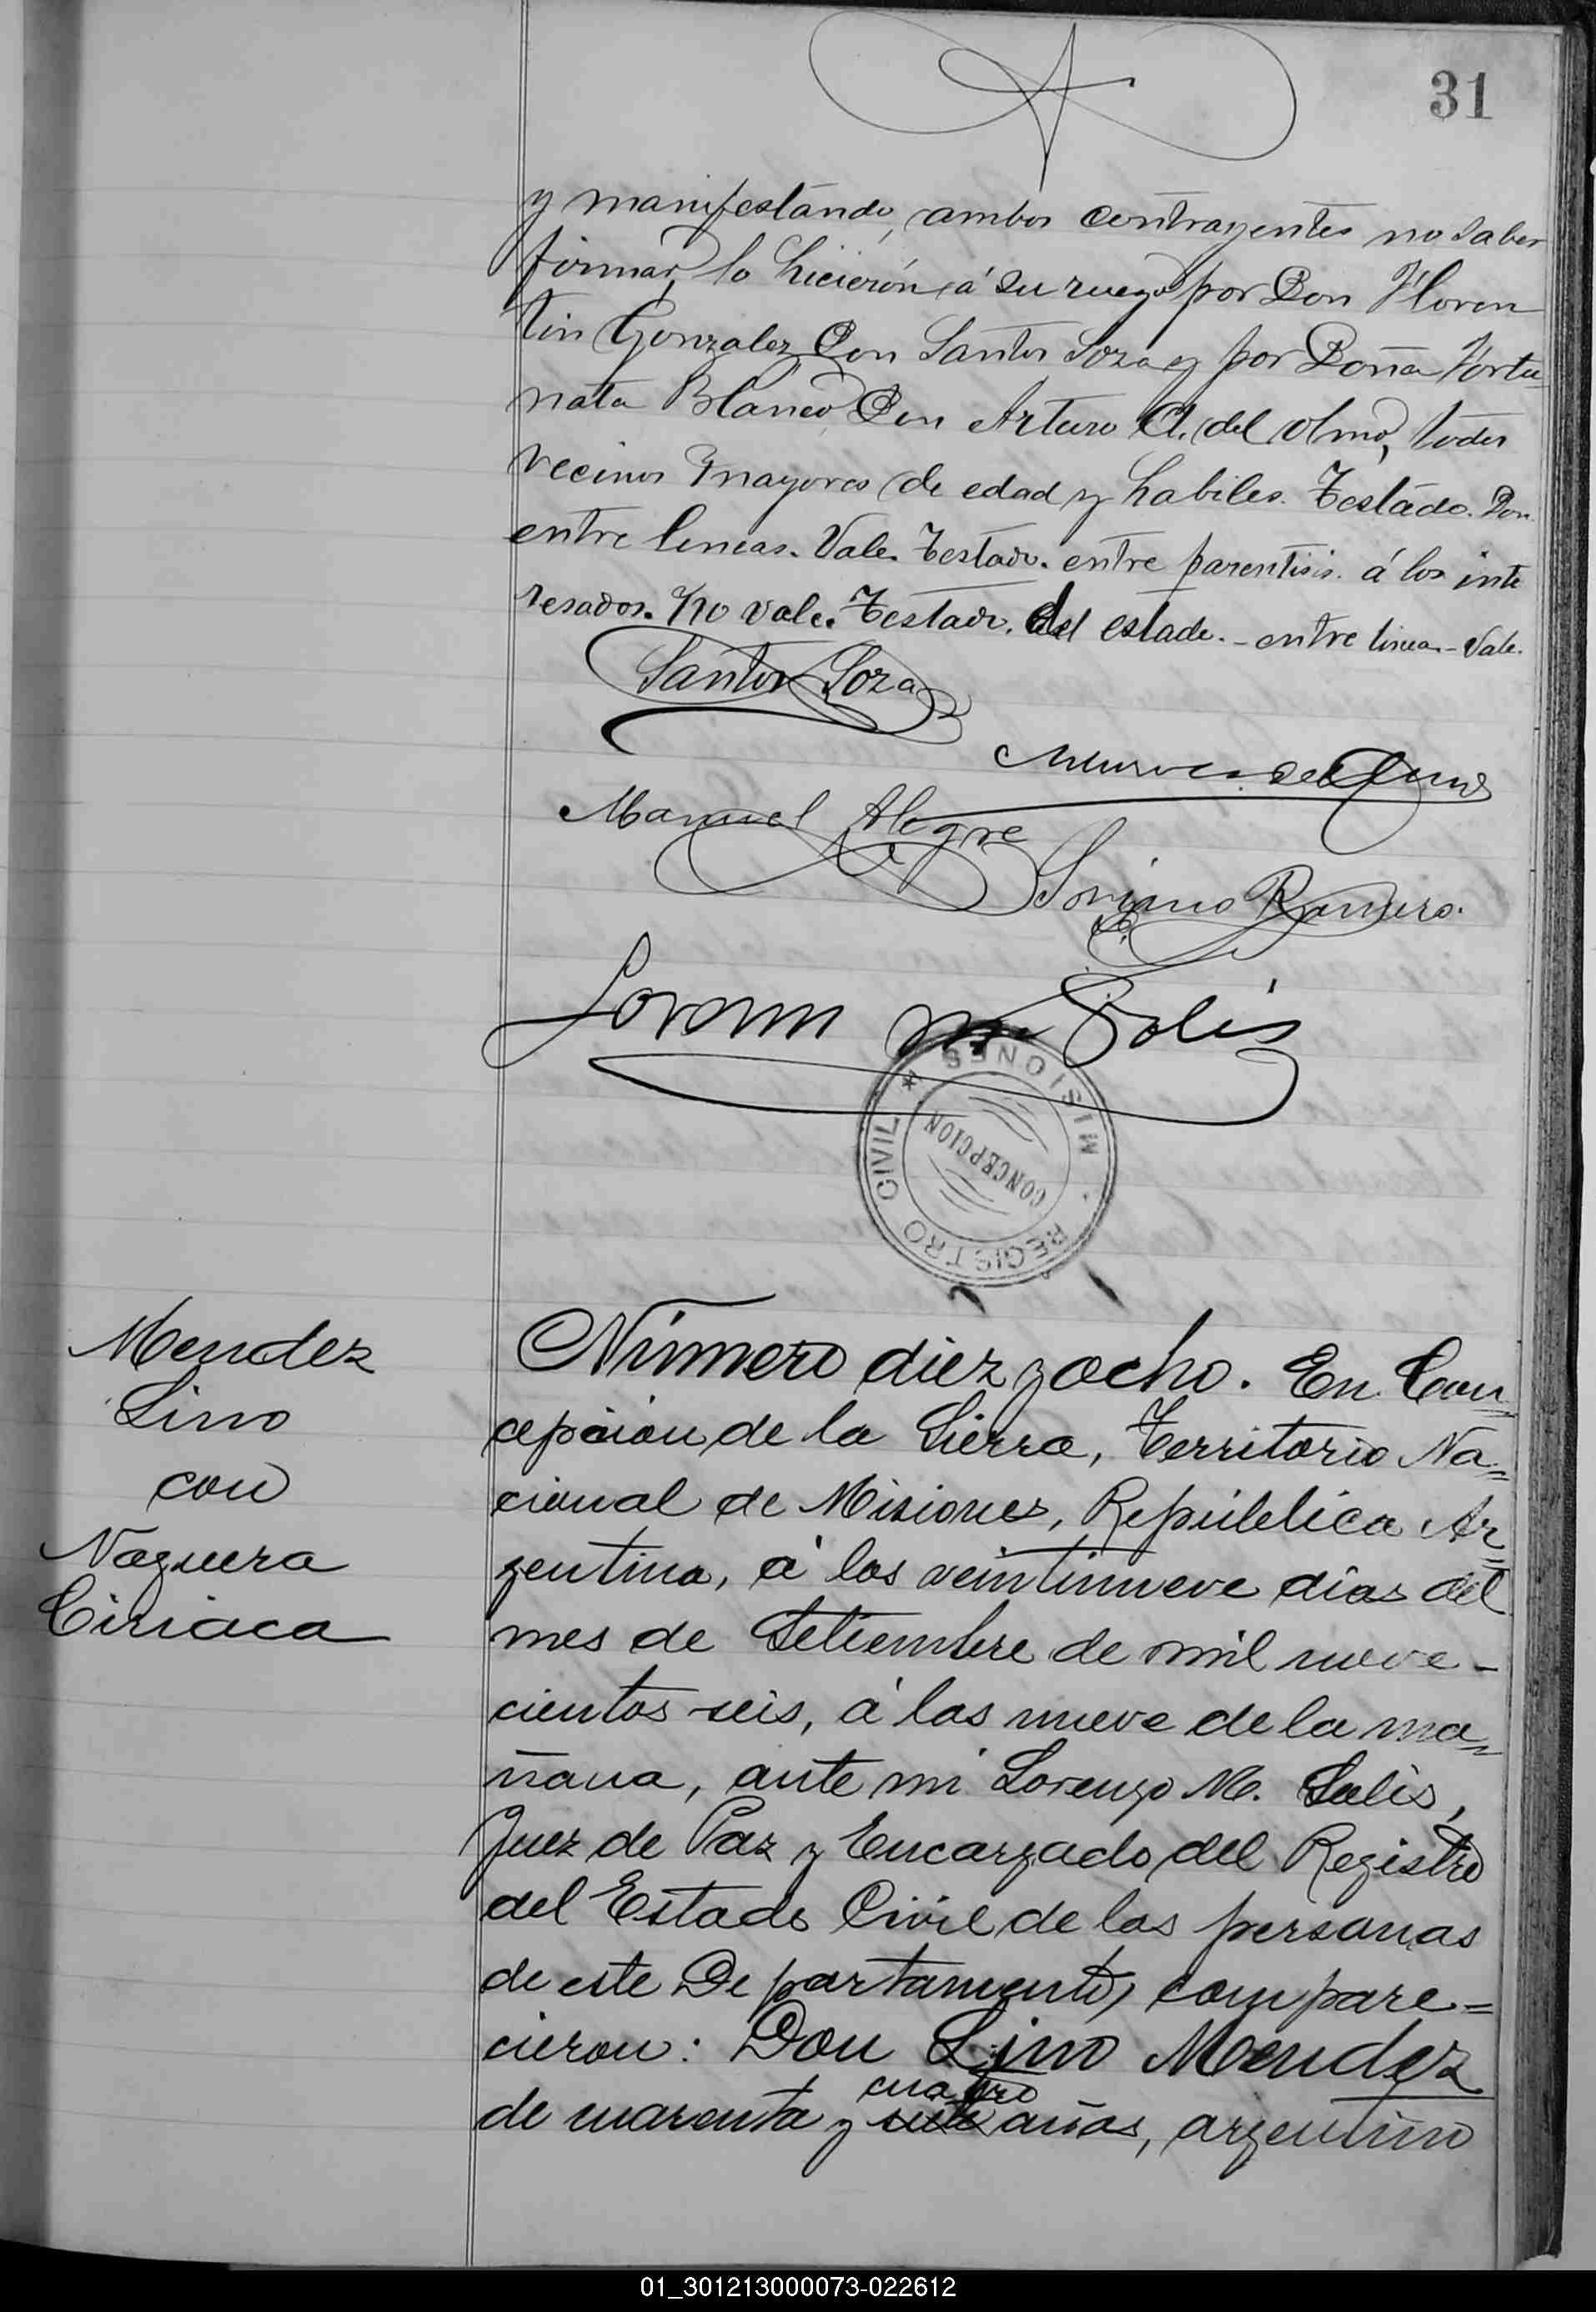 31
y manifestando, ambos contrayentes no saber
firmar, lo hicierón á su ruego por Don Floren
tin Gonzalez Don Santos Soza y por Doña Fortu-
nata Blanco Don Arturo A. del Olmo, todos
vecinos mayores de edad y habiles. Testado. Don.
entre lineas. Vale. Testado. entre parentisis. á los inte
resados. No vale. Testado. del estado. - entre linea - Vale.
Santos Soza
del Olmo
Manuel Alegre
Soriano Romero.
Lorenzo M. Solis
REGISTRO CIVIL * MISIONES
CONCEPCION
Mendez
Lino
con
Noguera
Ciriaca
Número diez y ocho. En Con=
cepcion de la Sierra, Territorio Na=
cional de Misiones, República Ar=
gentina, á los veintinueve dias del
mes de Setiembre de mil nueve-
cientos seis, á las nueve de la ma=
ñana, ante mi Lorenzo M. Solis,
Juez de Paz y Encargado del Registro
del Estado Civil de las personas
de este Departamento, compare=
cieron: Don Lino Mendez
cuatro
de cuarenta y siete años, argentino
01_301213000073-022612